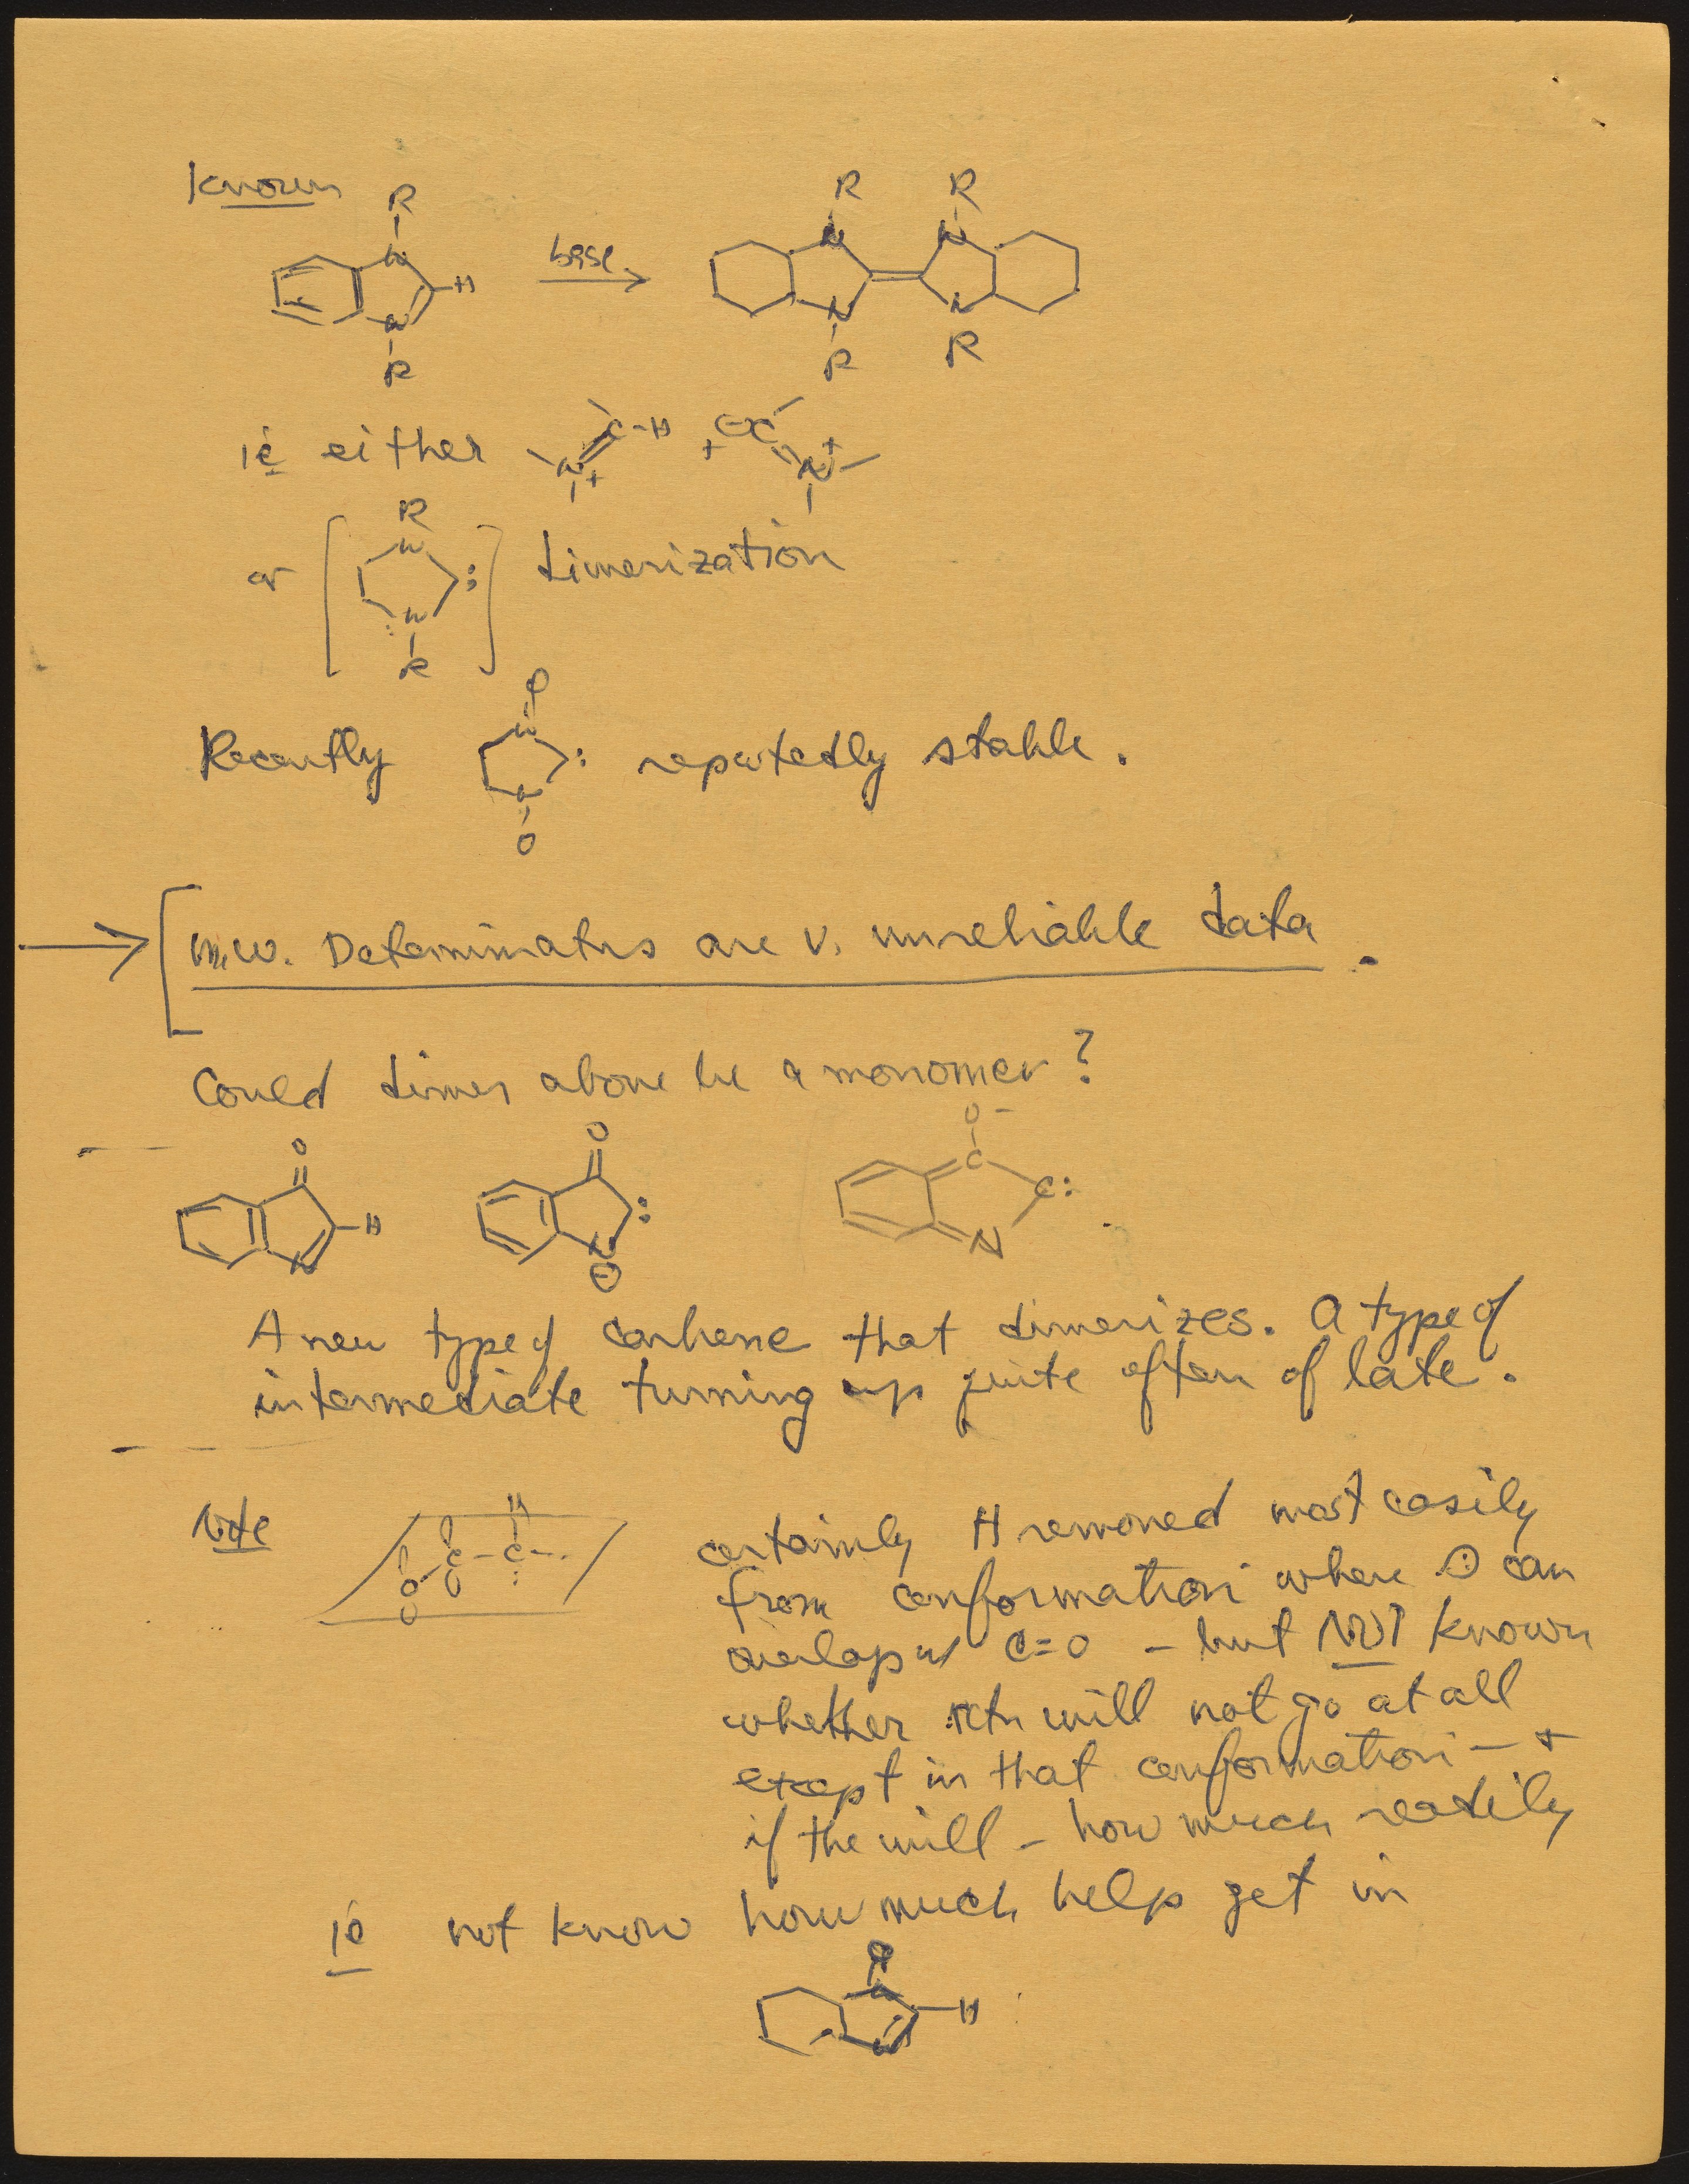 Known
R
N
H
N
R
base
R R
N N
N N
R R
ie either N + C-H + C N +
or R N : N R dimerization
Recently N : N reputedly stable.
→ [ m.w. Determinatns are v. unreliable data.
Could dimer above be a monomer?
O H N
O : N ⊖
O - C C: N
A new type of carbene that dimerizes. A type of
intermediate turning up quite often of late.
Note
H
C-C-
O
certainly H removed most easily
from conformation where ⊖ can
overlap w/ C=O - but NOT known
whether rctn will not go at all
except in that conformation - +
if the will - how much readily
ie not know how much help get in
O
H
N